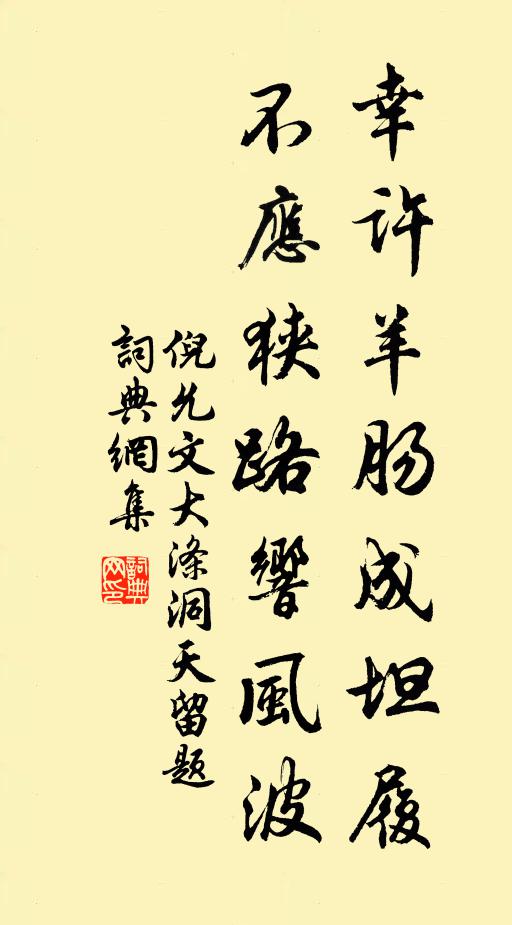 幸許羊腸成坦履
不應狹路響風波
倪允文大滌洞天留題
詞典網集
詞典网印